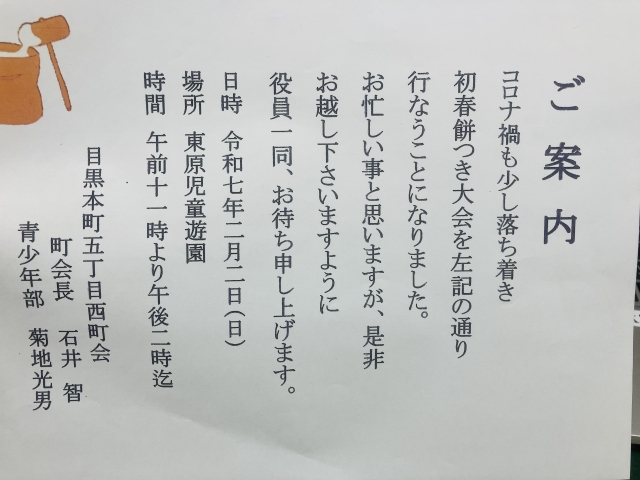 ご案内
コロナ禍も少し落ち着き
初春餅つき大会を左記の通り
行なうことになりました。
お忙しい事と思いますが、是非
お越し下さいますように
役員一同、お待ち申し上げます。
日時 令和七年二月二日(日)
場所 東原児童遊園
時間 午前十一時より午後二時迄
目黒本町五丁目西町会
町会長 石井 智
青少年部 菊地光男